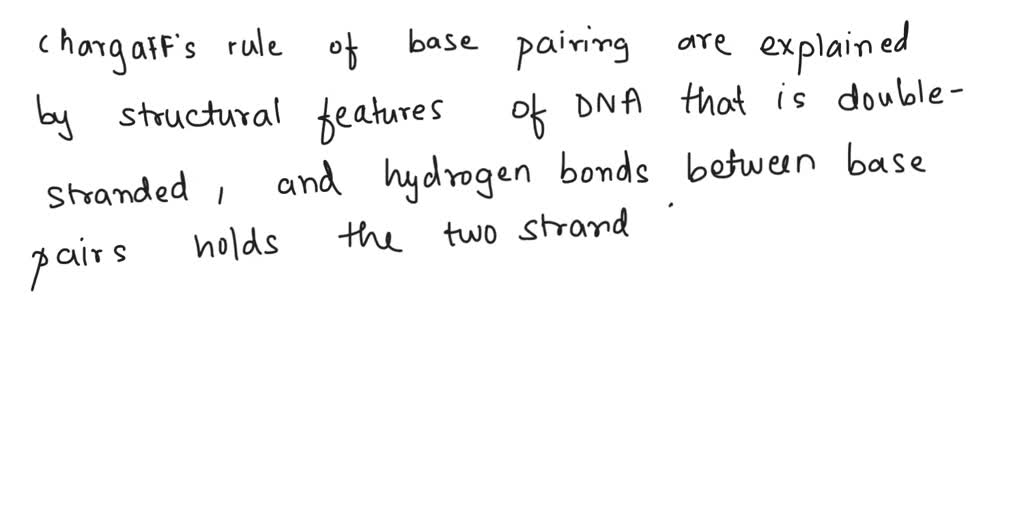 chargaff's rule of base pairing are explained
by structural features of DNA that is double-
stranded, and hydrogen bonds between base
pairs holds the two strand.